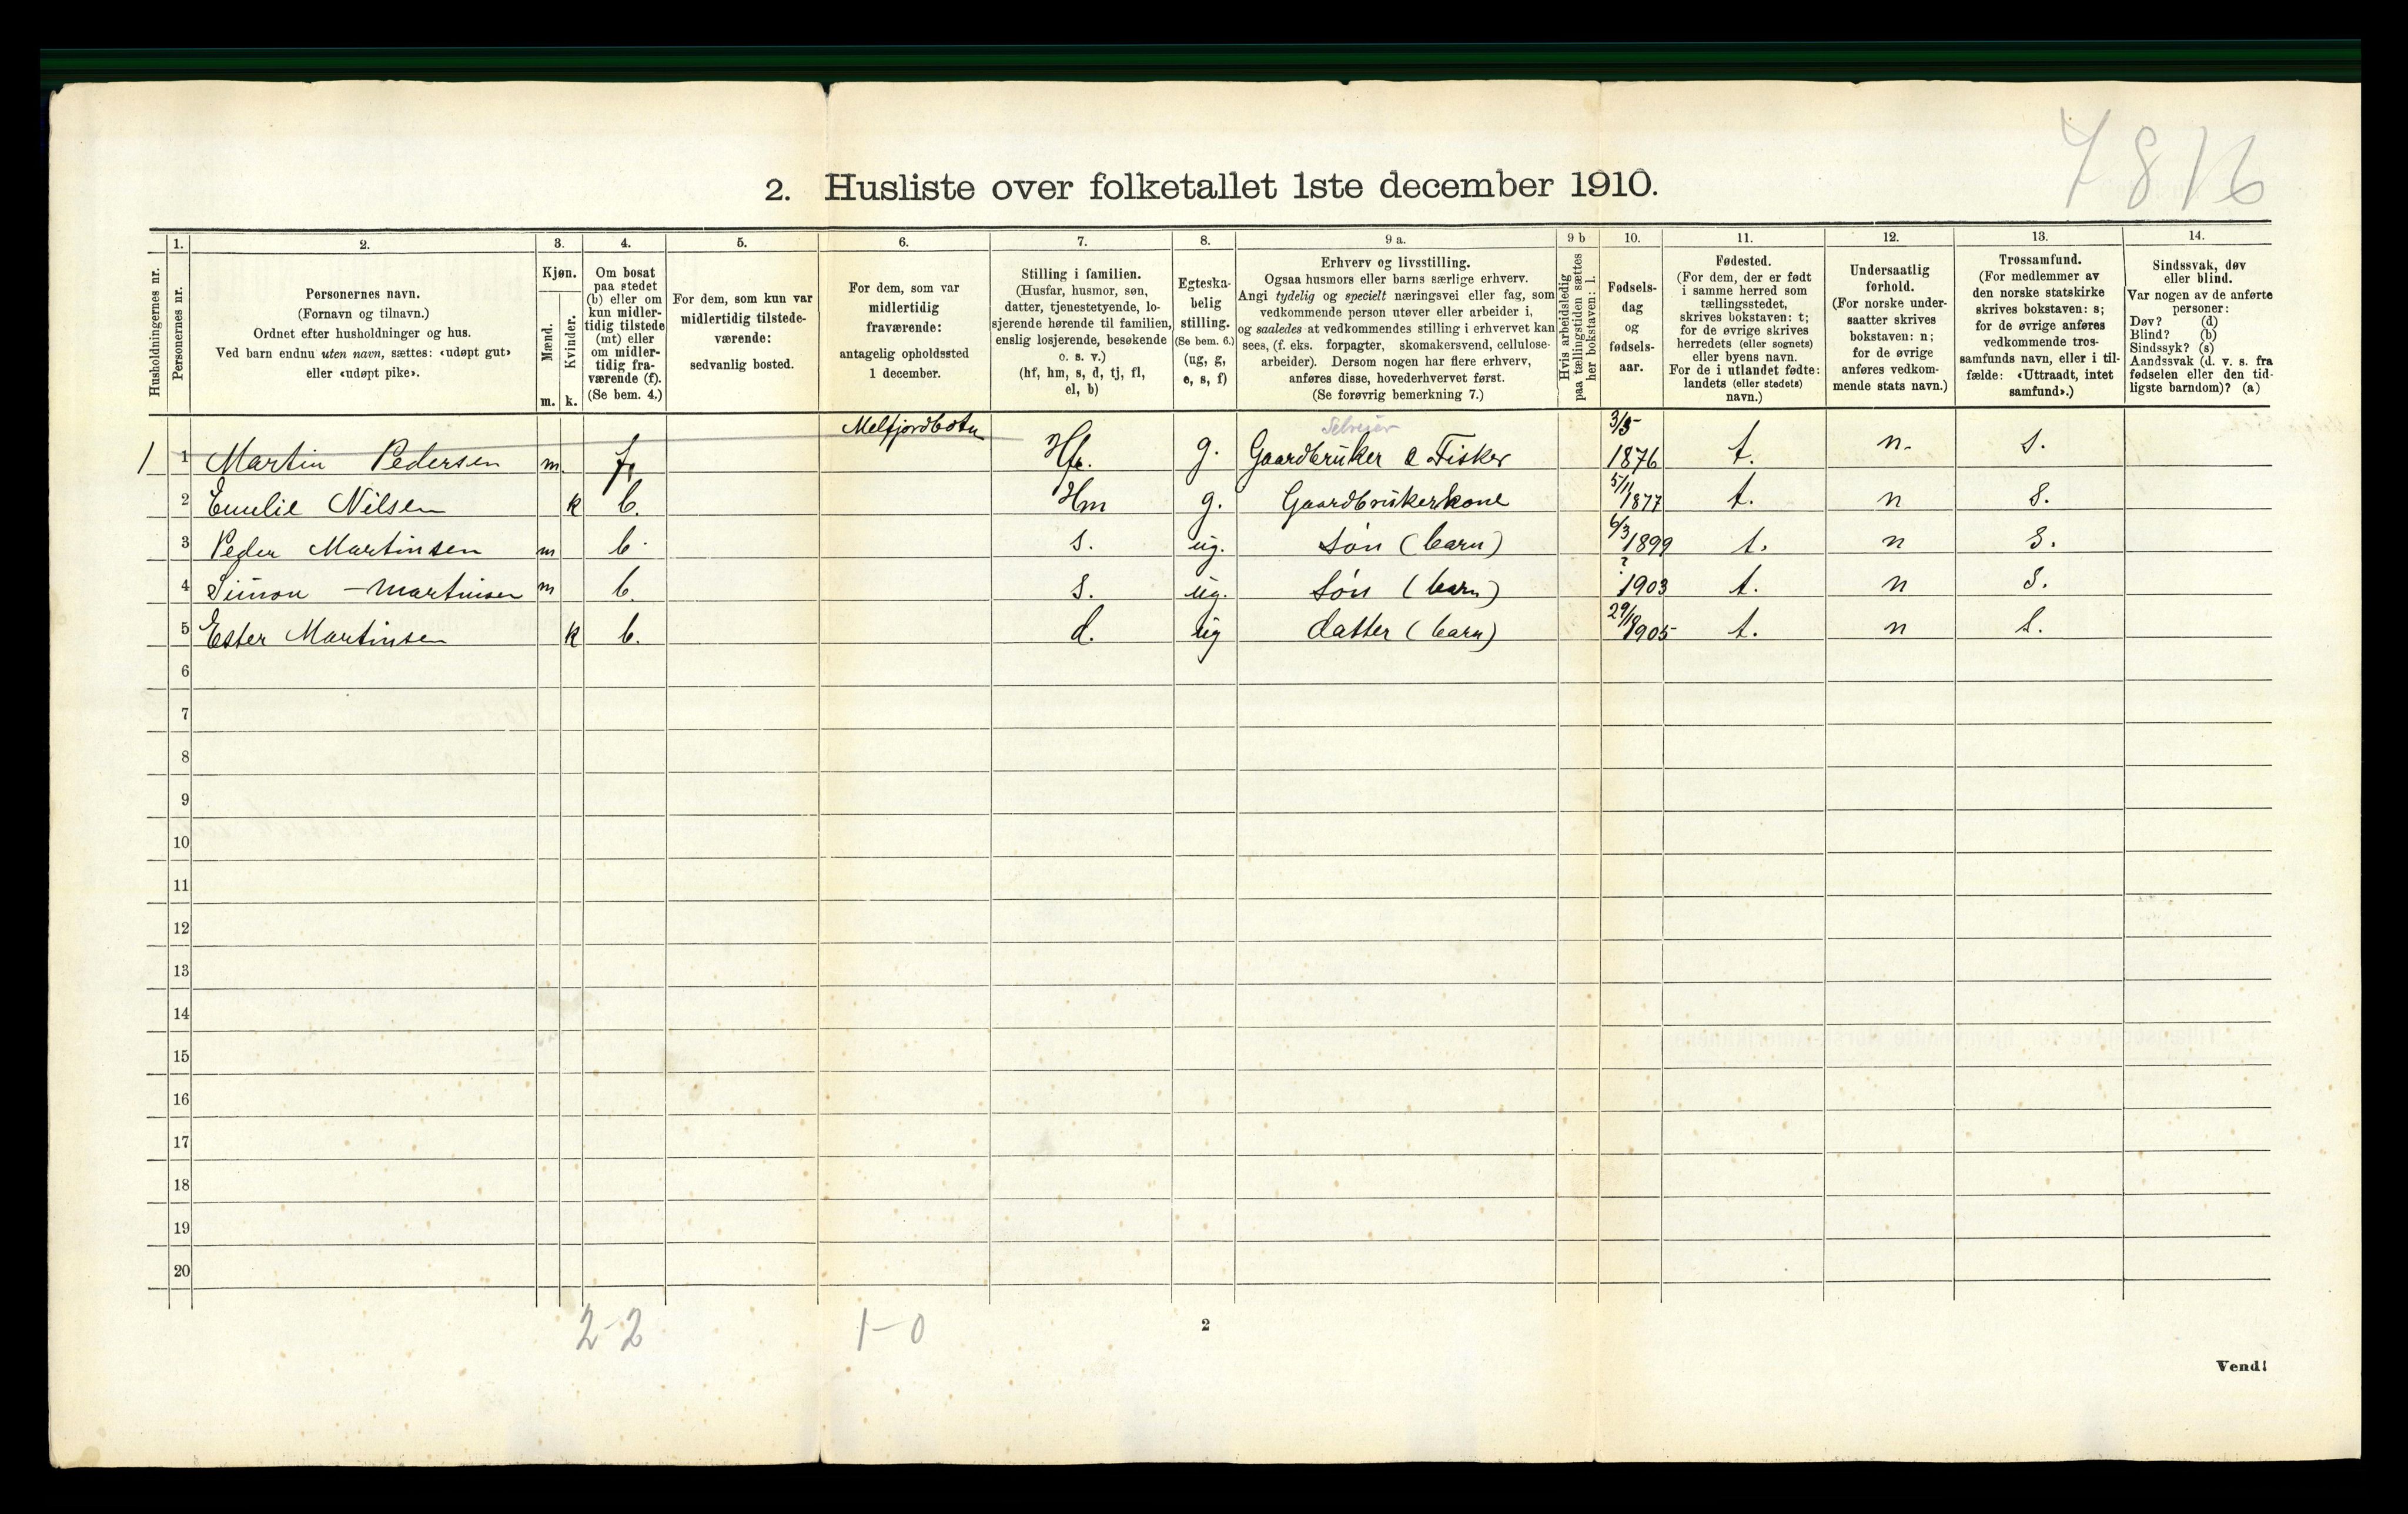 7816
2. Husliste over folketallet 1ste december 1910.
Husholdningernes nr.
1.
Personernes nr.
2.
Personernes navn.
(Fornavn og tilnavn.)
Ordnet efter husholdninger og hus.
Ved barn endnu uten navn, sættes: «udøpt gut»
eller «udøpt pike».
3.
Kjøn.
Mænd.
Kvinder.
m. k.
4.
Om bosat
paa stedet
(b) eller om
kun midler-
tidig tilstede
(mt) eller
om midler-
tidig fra-
værende (f).
(Se bem. 4.)
5.
For dem, som kun var
midlertidig tilstede-
værende:
sedvanlig bosted.
6.
For dem, som var
midlertidig
fraværende:
antagelig opholdssted
1 december.
7.
Stilling i familien.
(Husfar, husmor, søn,
datter, tjenestetyende, lo-
sjerende hørende til familien,
enslig losjerende, besøkende
o. s. v.)
(hf, hm, s, d, tj, fl,
el, b)
8.
Egteska-
belig
stilling.
(Se bem. 6.)
(ug, g,
e, s, f)
9 a.
Erhverv og livsstilling.
Ogsaa husmors eller barns særlige erhverv.
Angi tydelig og specielt næringsvei eller fag, som
vedkommende person utøver eller arbeider i,
og saaledes at vedkommendes stilling i erhvervet kan
sees, (f. eks. forpagter, skomakersvend, cellulose-
arbeider). Dersom nogen har flere erhverv,
anføres disse, hovederhvervet først.
(Se forøvrig bemerkning 7.)
9 b
Hvis arbeidsledig
paa tællingstiden sættes
her bokstaven: l.
10.
Fødsels-
dag
og
fødsels-
aar.
11.
Fødested.
(For dem, der er født
i samme herred som
tællingsstedet,
skrives bokstaven: t;
for de øvrige skrives
herredets (eller sognets)
eller byens navn.
For de i utlandet fødte:
landets (eller stedets)
navn.)
12.
Undersaatlig
forhold.
(For norske under-
saatter skrives
bokstaven: n;
for de øvrige
anføres vedkom-
mende stats navn.)
13.
Trossamfund.
(For medlemmer av
den norske statskirke
skrives bokstaven: s;
for de øvrige anføres
vedkommende tros-
samfunds navn, eller i til-
fælde: «Uttraadt, intet
samfund».)
14.
Sindssvak, døv
eller blind.
Var nogen av de anførte
personer:
Døv? (d)
Blind? (b)
Sindssyk? (s)
Aandssvak (d. v. s. fra
fødselen eller den tid-
ligste barndom)? (a)
Melfjordbotn Selveier 3/5
1 1 Martin Pedersen m. f. Hf. g. Gaardbruker & Fisker 1876 t. n. s.
2 Emilie Nilsen k b. Hm g. Gaardbrukerkone 5/11 1877 t. n s.
3 Peder Martinsen m b. s. ug. søn (barn) 6/3 1899 t. n s.
4 Simon - Martinsen m b. s. ug. søn (barn) ? 1903 t. n s.
5 Ester Martinsen k b. d. ug datter (barn) 1905 t. n s.
6
7
8
9
10
11
12
13
14
15
16
17
18
19
20
2-2 1-0 2
Vend!